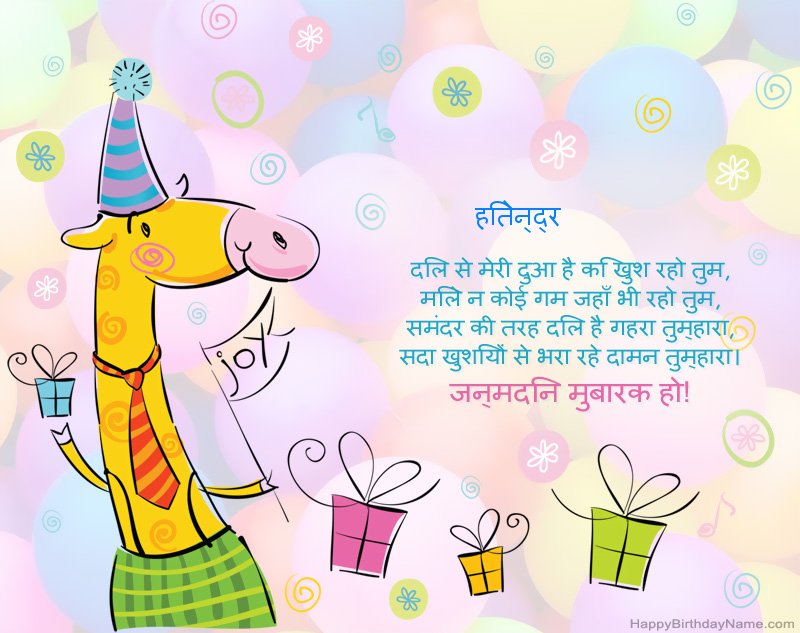 हितेन्द्र
दिल से मेरी दुआ है कि खुश रहो तुम,
मिले न कोई गम जहाँ भी रहो तुम,
समंदर की तरह दिल है गहरा तुम्हारा,
सदा खुशियों से भरा रहे दामन तुम्हारा।
जन्मदिन मुबारक हो!
joy
HappyBirthdayName.com